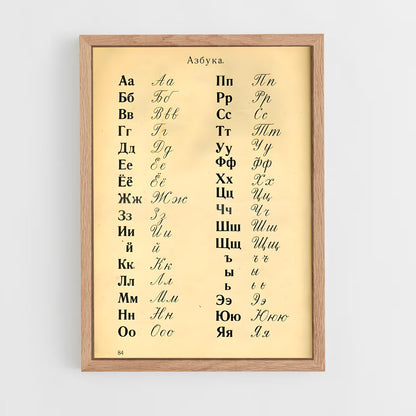 Азбука.
Аа Аа
Бб Бб
Вв Ввв
Гг Гг
Дд Дд
Ее Ее
Ёё Ёё
Жж Жж
Зз Зз
Ии Ии
й й
Кк Кк
Лл Лл
Мм Мм
Нн Нн
Оо Ооо
Пп Пп
Рр Рр
Сс Сс
Тт Тт
Уу Уу
Фф Фф
Хх Хх
Цц Цц
Чч Чч
Шш Шш
Щщ Щщ
ъ ъъ
ы ы
ь ьь
Ээ Ээ
Юю Ююю
Яя Яя
84